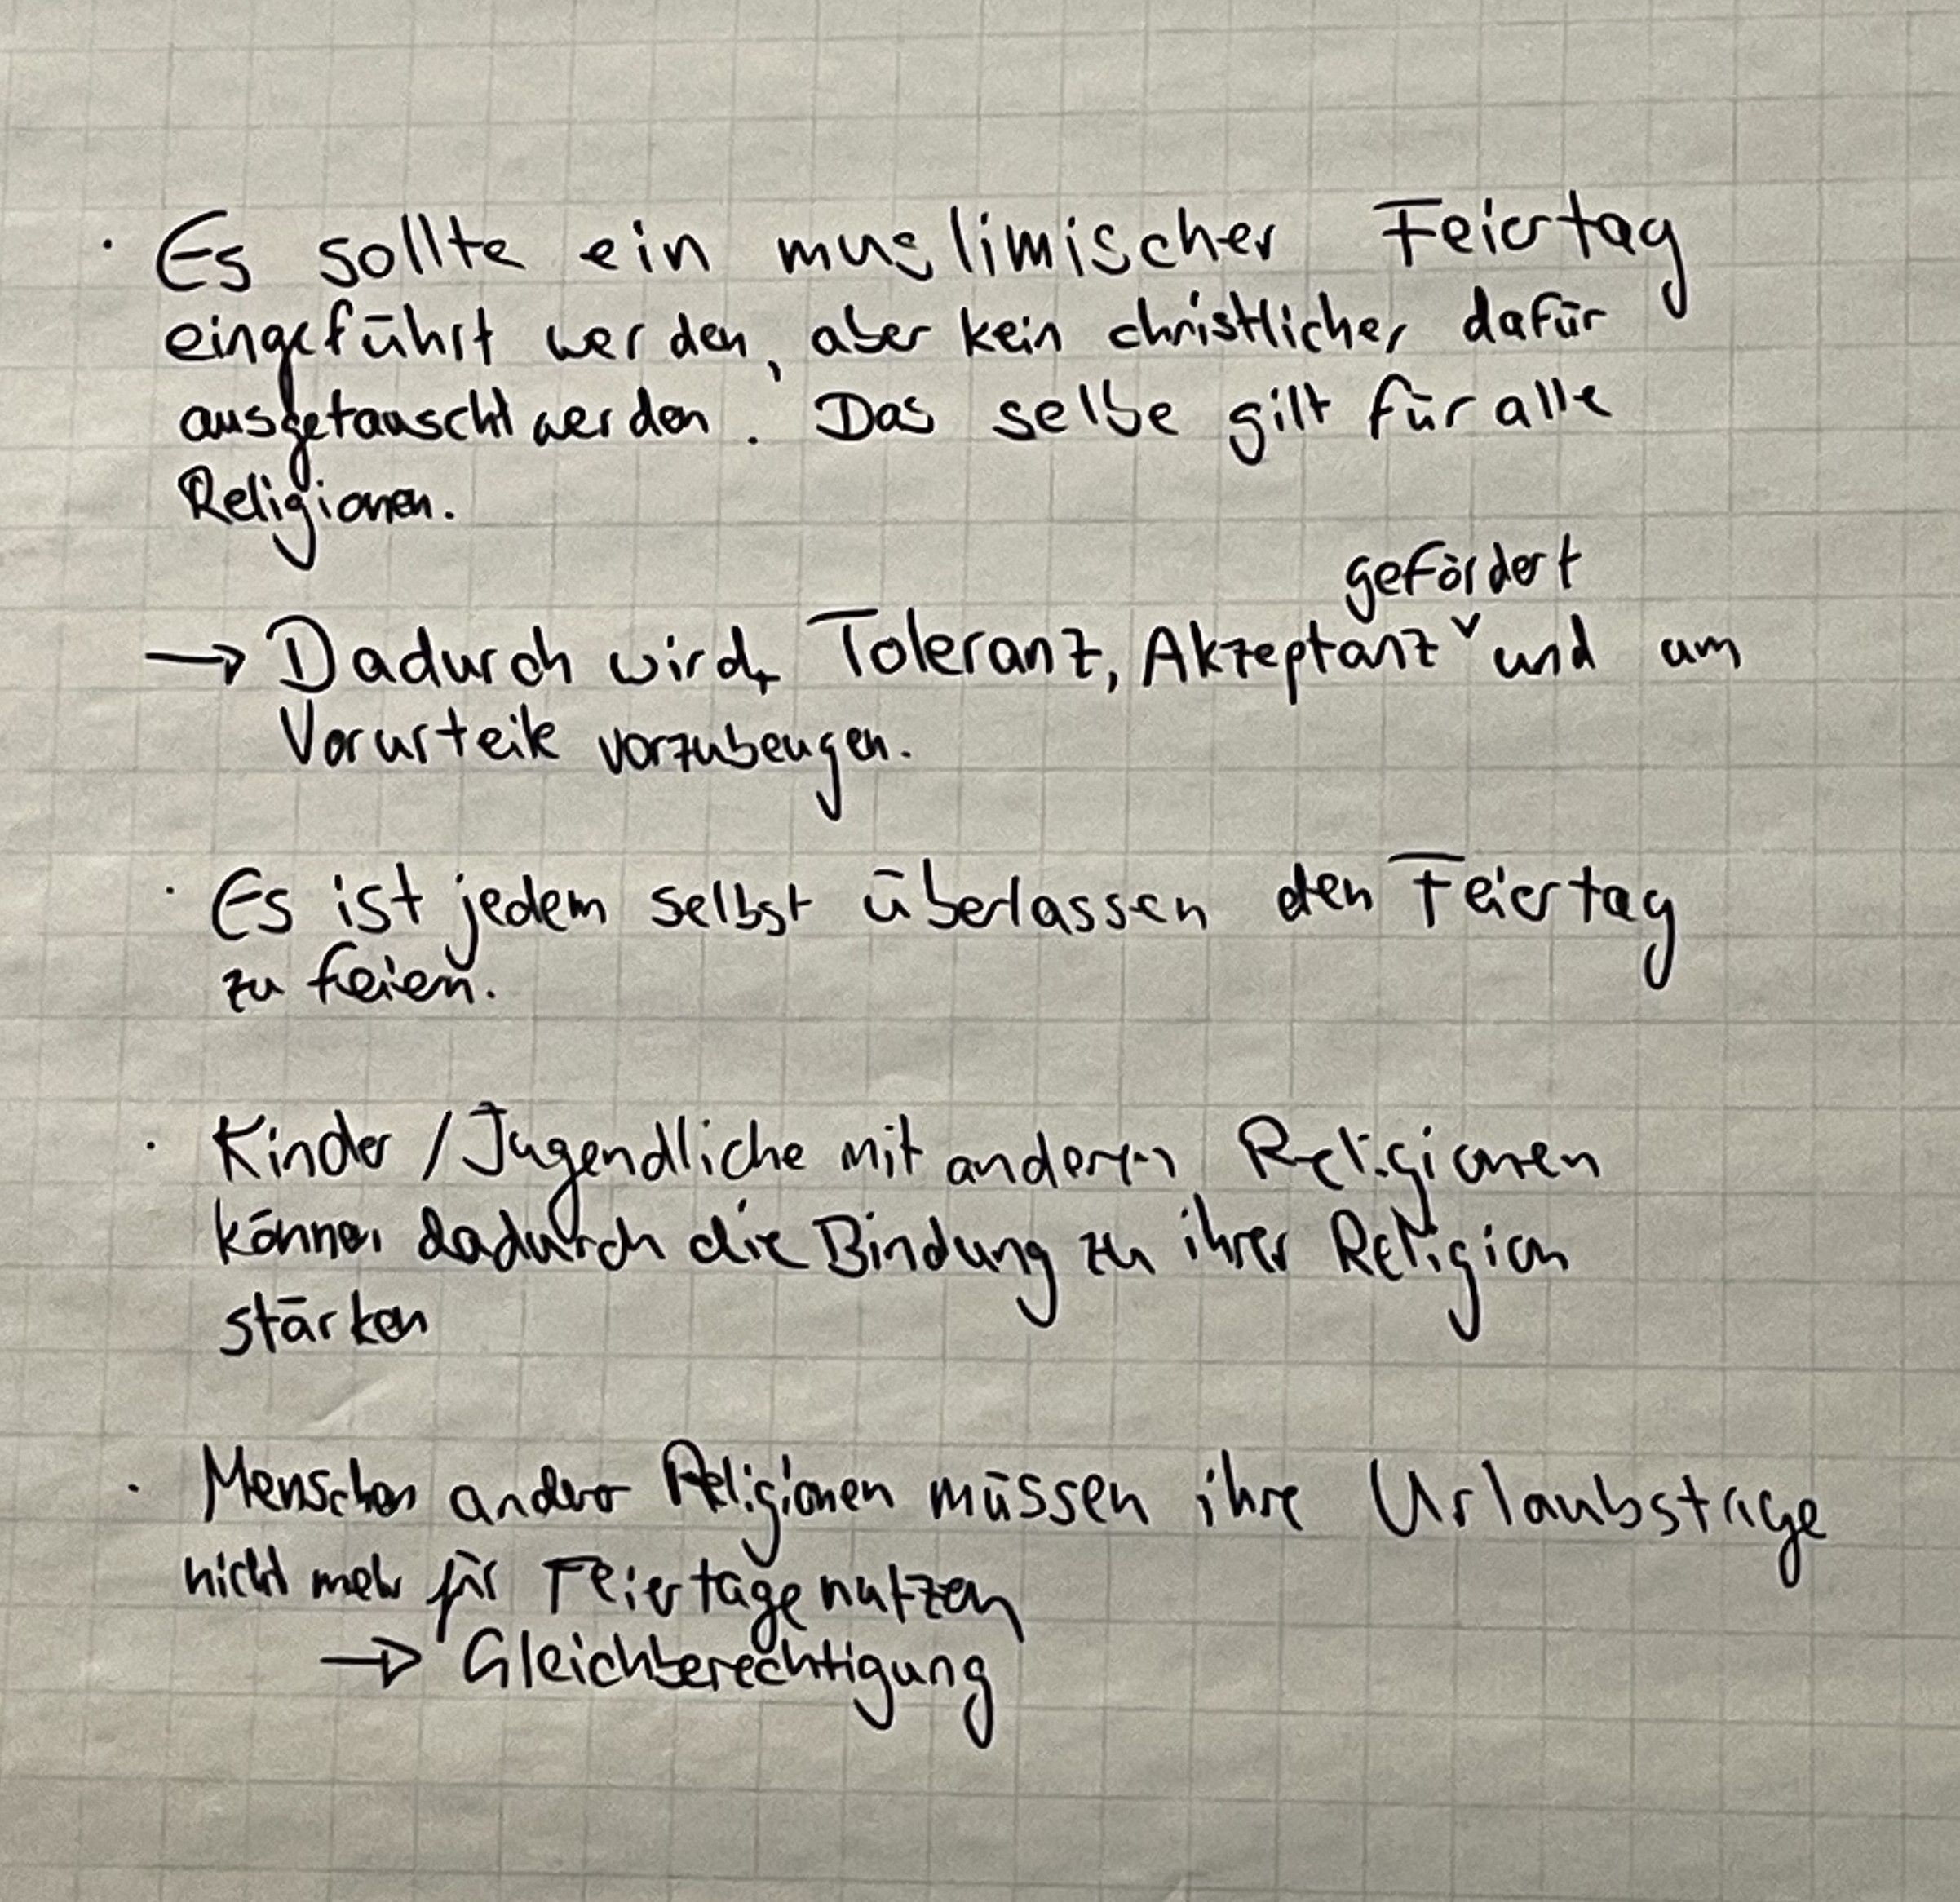 · Es sollte ein muslimischer Feiertag
eingeführt werden, aber kein christlicher dafür
ausgetauscht werden. Das selbe gilt für alle
Religionen.
gefördert
→ Dadurch wird Toleranz, Akzeptanz ˅ und um
Vorurteile vorzubeugen.
· Es ist jedem selbst überlassen den Feiertag
zu feiern.
· Kinder / Jugendliche mit anderen Religionen
können dadurch die Bindung zu ihrer Religion
stärken
· Menschen anderer Religionen müssen ihre Urlaubstage
nicht mehr für Feiertage nutzen
→ Gleichberechtigung